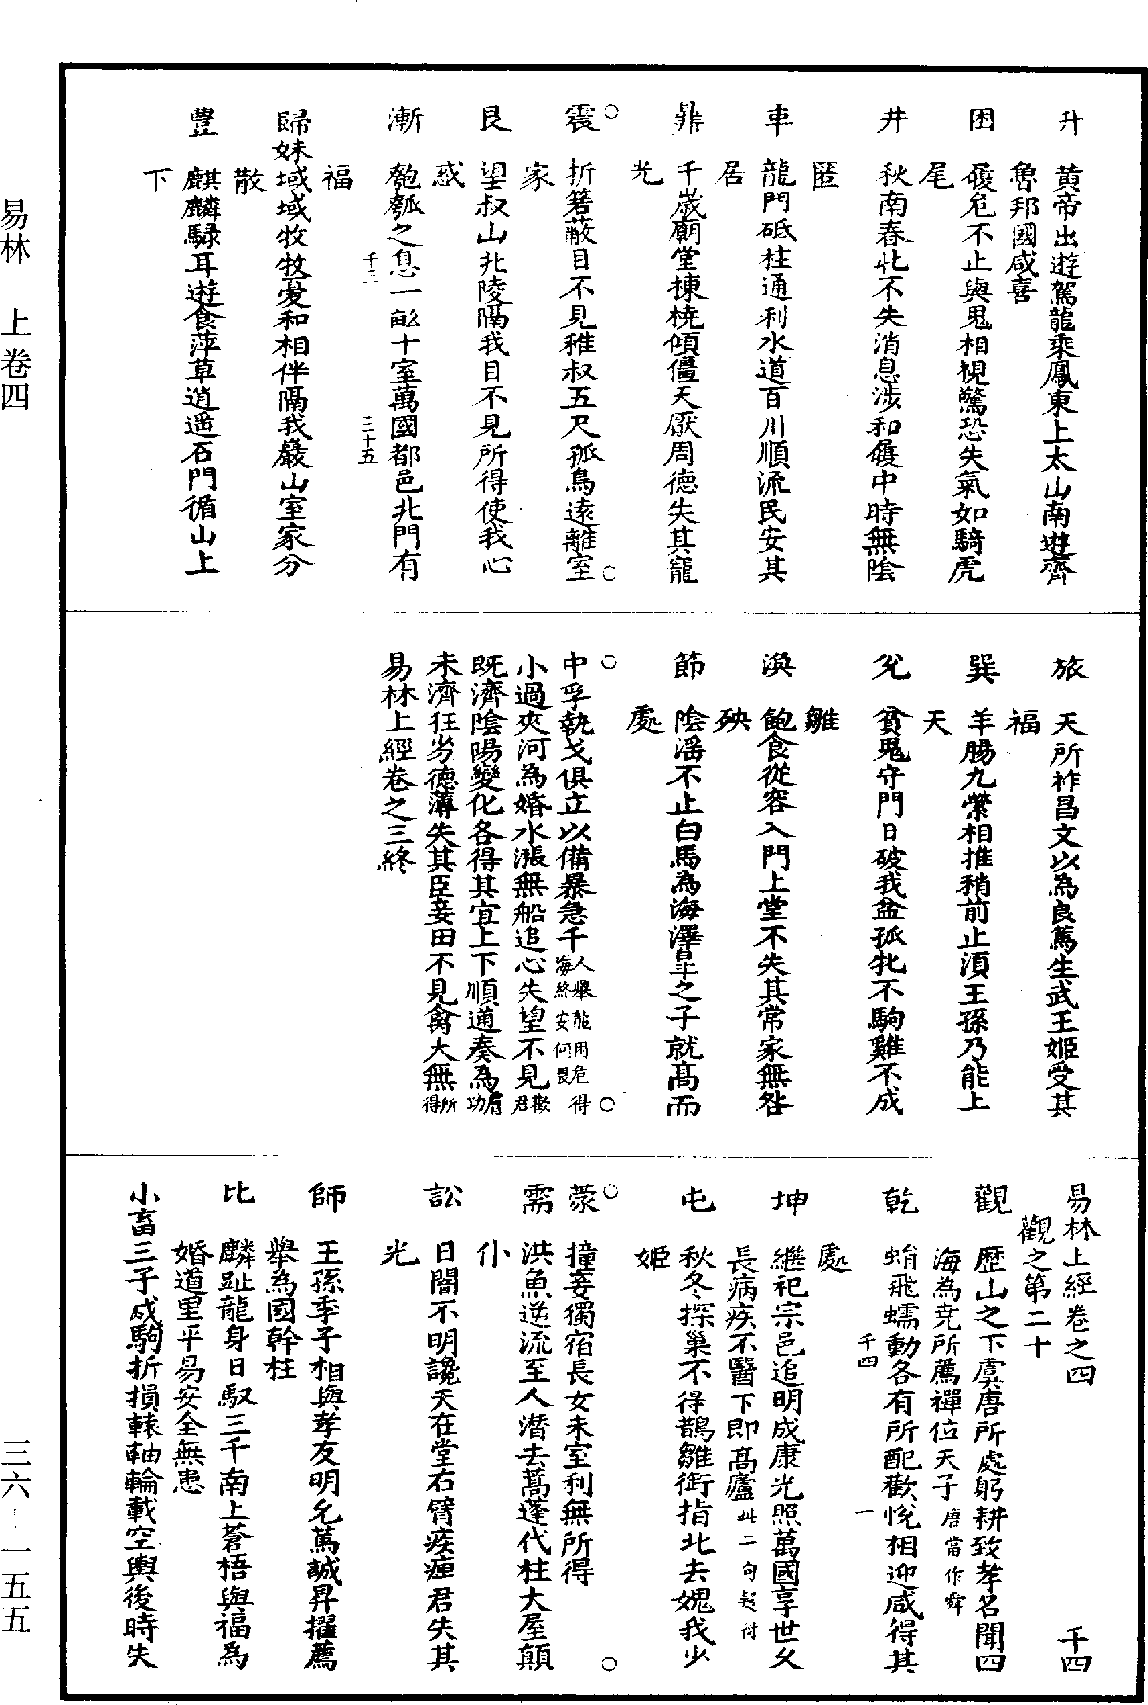 易林　上卷四
升　黃帝出遊駕龍乘鳳東上太山南遊齊
魯邦國咸喜
困　履危不止與鬼相視驚恐失氣如騎虎
尾
井　秋南春北不失消息涉和履中時無陰
匿
車　龍門砥柱通利水道百川順流民安其
居
鼎　千歲廟堂棟橈傾僵天厭周德失其寵
光
○　○
震　折箬蔽目不見稚叔五尺孤鳥遠離室
家
艮　望叔山北陵隔我目不見所得使我心
惑
漸　匏瓠之息一畝十室萬國都邑北門有
千三　三十五
福
歸妹域域牧牧憂和相伴隔我巖山室家分
散
豐　麒麟騄耳遊食萍草逍遥石門循山上
下
旅　天所祚昌文以為良篤生武王姬受其
福
巽　羊腸九縈相推稍前止湏王孫乃能上
天
兊　貧鬼守門日破我盆孤牝不駒雞不成
雛
渙　飽食從容入門上堂不失其常家無咎
殃
節　陰滛不止白馬為海澤皐之子就高而
處
○　○
中孚執戈俱立以備暴急千人舉龍用危得海終安何畏
小過夾河為婚水漲無船追心失望不見歡君
既濟陰陽變化各得其宜上下順通奏為膚功
未濟狂劣德薄失其臣妾田不見禽犬無所得
易林上經卷之三終
易林上經卷之四　千四
觀之第二十
觀　歷山之下虞唐所處躬耕致孝名聞四
海為堯所薦禪位天子唐當作舜
乾　蛸飛蠕動各有所配歡悅相迎咸得其
千四　一
處
坤　繼祀宗邑追明成康光照萬國享世久
長病疾不醫下即高廬此二句起付
屯　秋冬探巢不得鵲雛銜指北去媿我少
姬
○　○
蒙　撞妾獨宿長女未室利無所得
需　洪魚逆流至人潛去蒿蓬代柱大屋顛
仆
訟　日闇不明讒夭在堂右臂疾痺君失其
光
師　王孫季子相與孝友明允篤誠昇擢薦
舉為國幹柱
比　麟趾龍身日馭三千南上蒼梧與福為
婚道里平易安全無患
小畜三子成駒折損轅軸輪載空輿後時失
三六－一五五